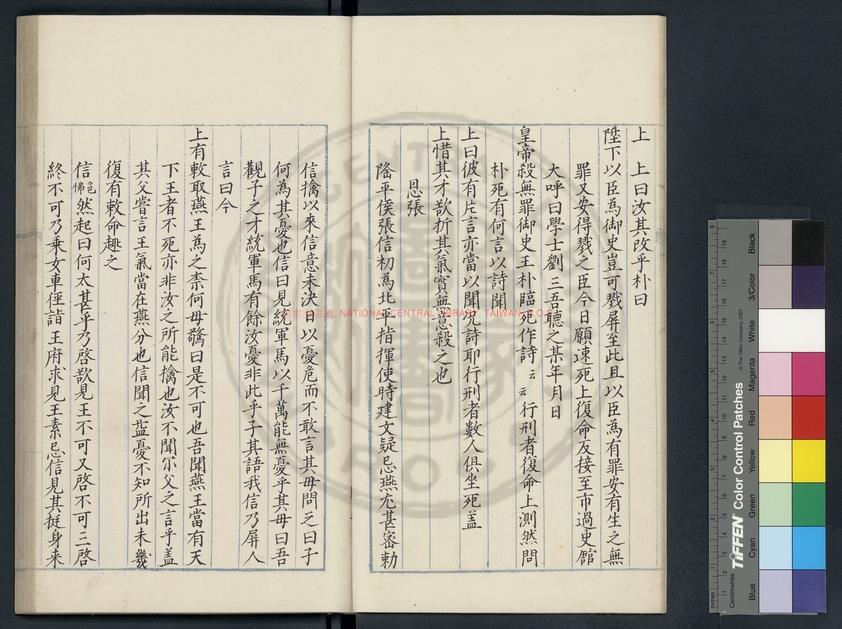 上　上曰汝其改乎朴曰
陛下以臣為御史豈可戮屏至此且以臣為有罪安有生之無
罪又安得戮之臣今日願速死上復命反接至市過史館
大呼曰學士劉三吾聽之某年月日
皇帝殺無罪御史王朴臨死作詩云云行刑者復命上測然問
朴死有何言以詩聞
上曰彼有片言亦當以聞況詩耶行刑者數人俱坐死蓋
上惜其才欲折其氣實無意殺之也
恩張
隆平侯張信初為北平指揮使時建文疑忌燕尤甚密勅
信擒以來信意未決日以憂危而不敢言其母問之曰子
何為其憂也信曰見統軍馬以千萬能無憂乎其母曰吾
觀子之才統軍馬有餘汝憂非此乎子其語我信乃屏人
言曰今
上有敕取燕王為之柰何母驚曰是不可也吾聞燕王當有天
下王者不死亦非汝之所能擒也汝不聞尔父之言乎蓋
其父嘗言王氣當在燕分也信聞之益憂不知所出未幾
復有敕命趣之
信艴然起曰何太甚乎乃啓欲見王不可又啓不可三啓
終不可乃乗女車徑詣王府求見王素忌信見其挺身来
NATIONAL CENTRAL LIBRARY, TAIWAN, R.O.C.
TIFFEN Color Control Patches
© The Tiffen Company, 2007
Centimetres
Inches
Blue
Cyan
Green
Yellow
Red
Magenta
White
3/Color
Black